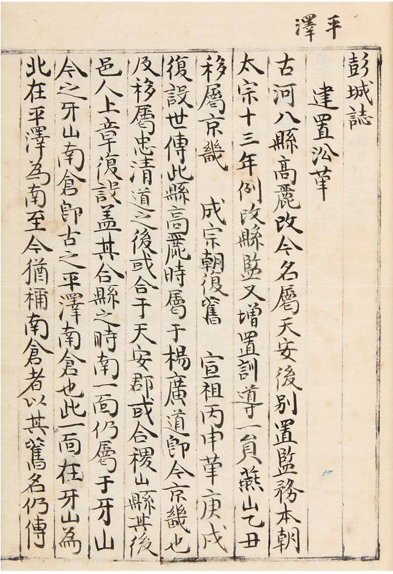 平澤
彭城誌
建置沿革
古河八縣高麗改今名屬天安後別置監務本朝
太宗十三年例改縣監又增置訓導一員燕山乙丑
移屬京畿 成宗朝復舊 宣祖丙申革庚戌
復設世傳此縣高麗時屬于楊廣道卽今京畿也
及移屬忠清道之後或合于天安郡或合稷山縣其後
邑人上章復設盖其合縣之時南一面仍屬于牙山
今之牙山南倉卽古之平澤南倉也此一面在牙山爲
北在平澤爲南至今猶稱南倉者以其舊名仍傳